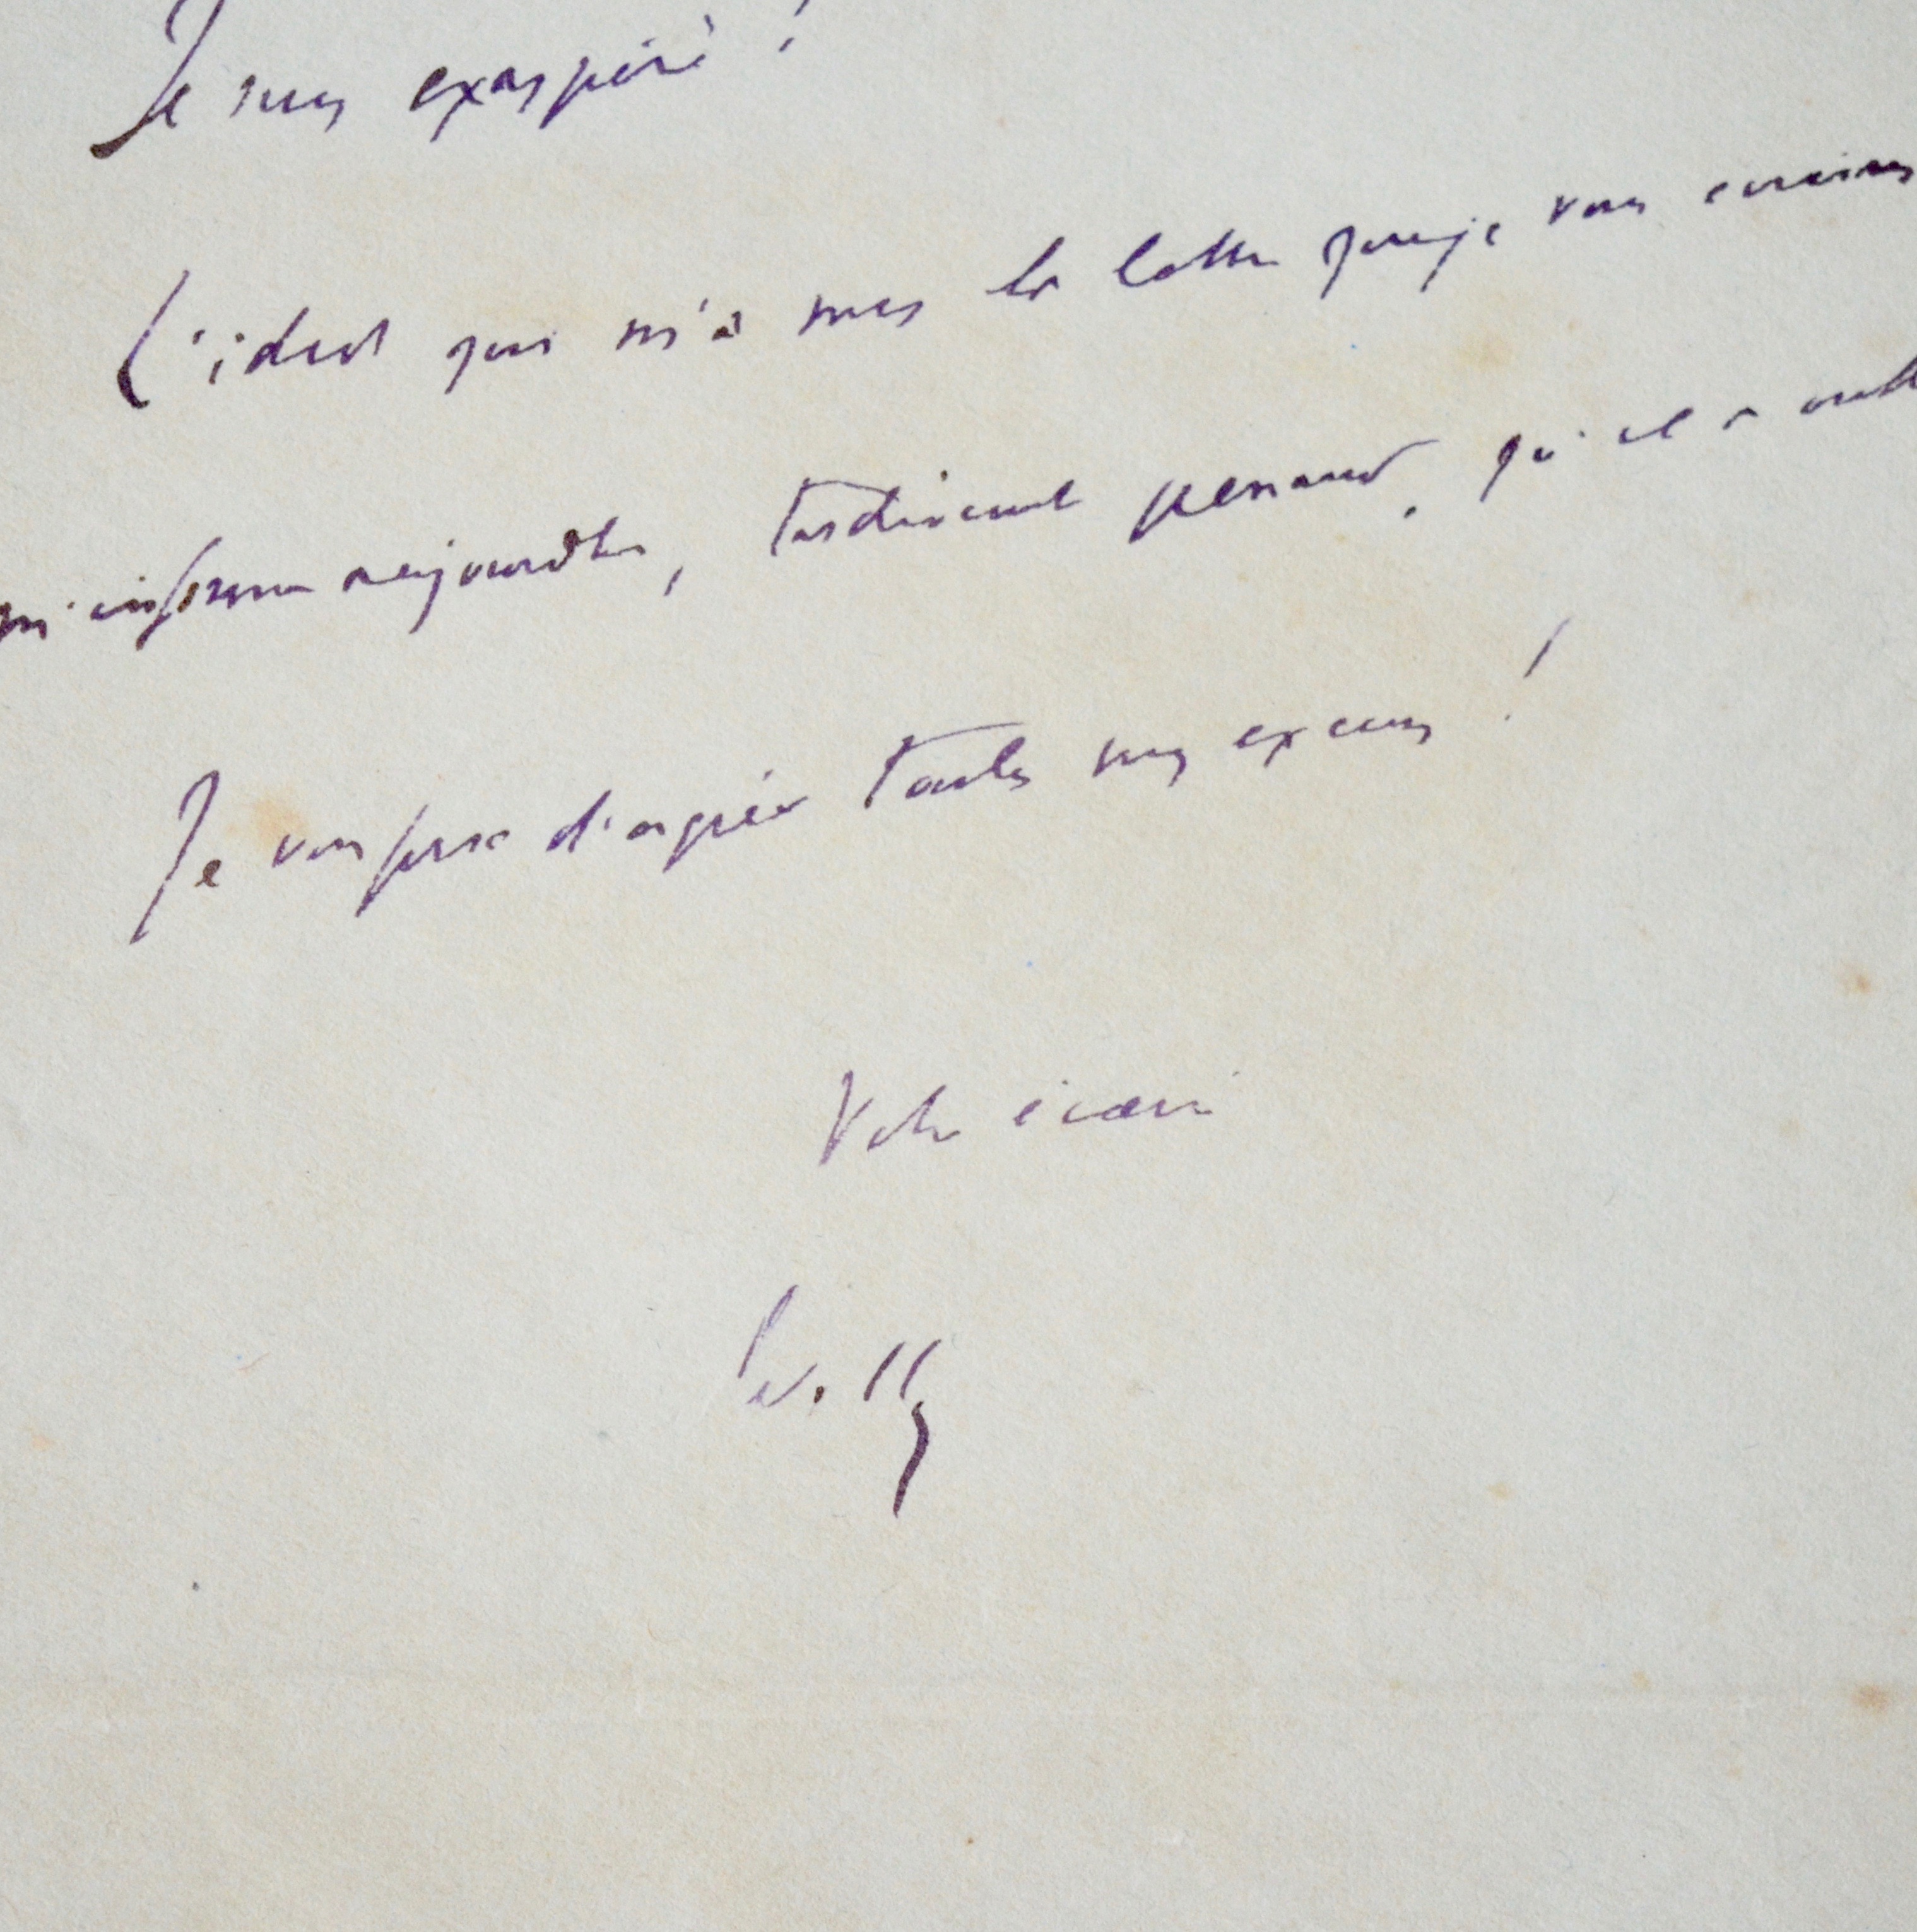 Je suis exaspéré !
L'idiot qui m'a mis la lettre que je vous écrivais
m'informe aujourd'hui, tardivement penaud, qu'il a
Je vous prie d'agréer toutes mes excuses !
Votre écœuré
Willy